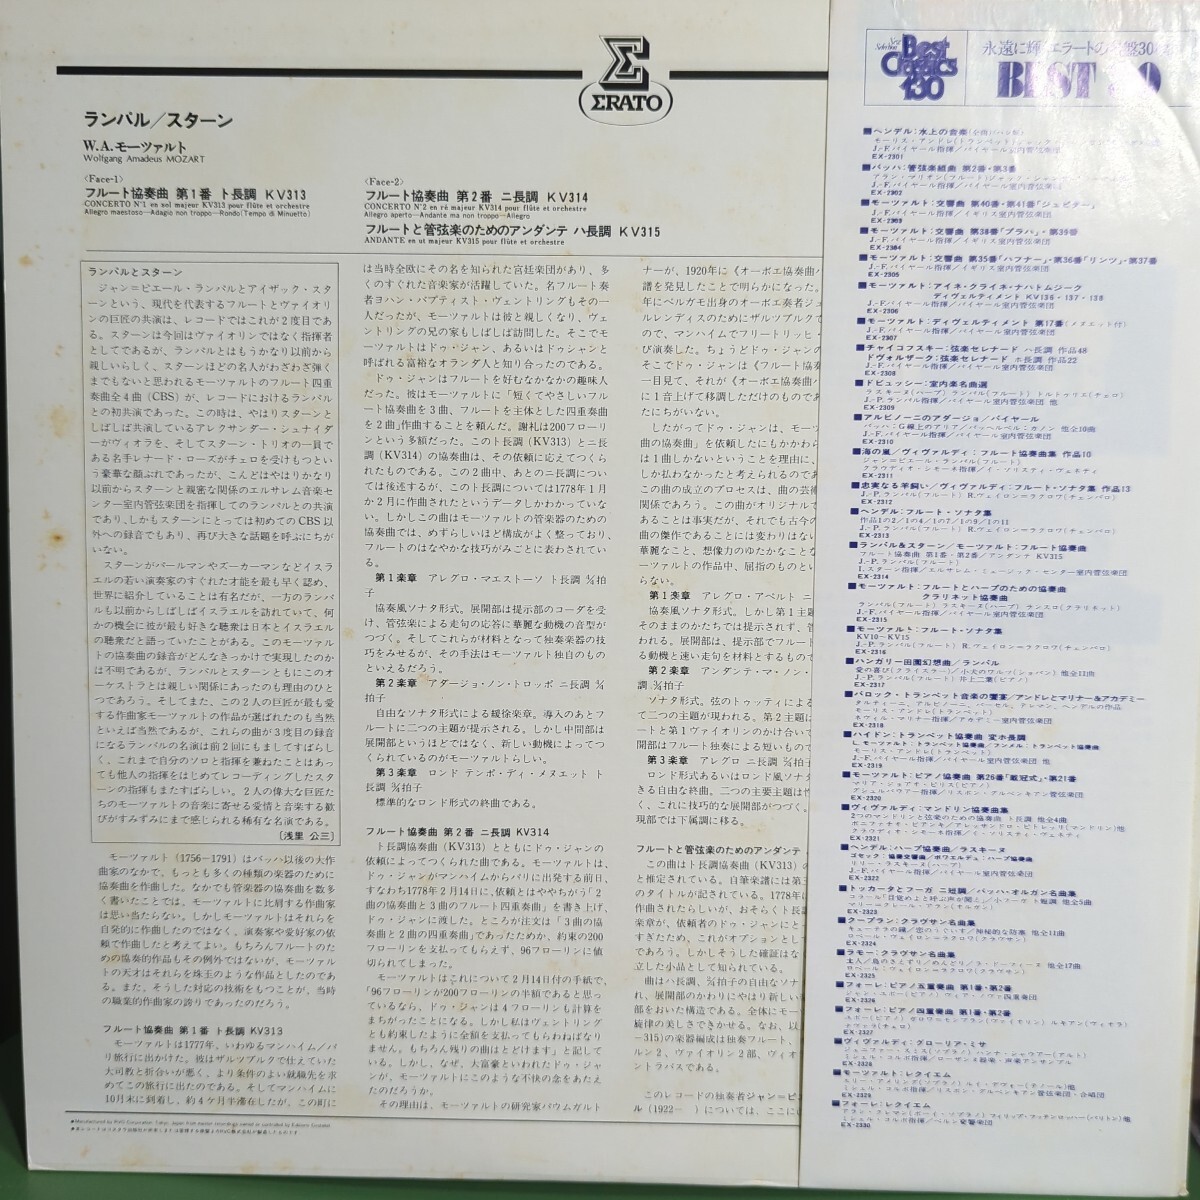 ERATO
ランパル／スターン
W.A.モーツァルト
Wolfgang Amadeus MOZART
〈Face-1〉
フルート協奏曲 第1番 ト長調 KV313
CONCERTO N°1 en sol majeur KV313 pour flûte et orchestre
Allegro maestoso—Adagio non troppo—Rondo(Tempo di Minuetto)
〈Face-2〉
フルート協奏曲 第2番 ニ長調 KV314
CONCERTO N°2 en ré majeur KV314 pour flûte et orchestre
Allegro aperto—Andante ma non troppo—Allegro
フルートと管弦楽のためのアンダンテ ハ長調 KV315
ANDANTE en ut majeur KV315 pour flûte et orchestre
ランパルとスターン
ジャン＝ピエール・ランパルとアイザック・スタ
ーンという、現代を代表するフルートとヴァイオリ
ンの巨匠の共演は、レコードではこれが2度目であ
る。スターンは今回はヴァイオリンではなく指揮者
としてであるが、ランパルとはもうかなり以前から
親しいらしく、スターンほどの名人がわざわざ弾く
までもないと思われるモーツァルトのフルート四重
奏曲全4曲（CBS）が、レコードにおけるランパル
との初共演であった。この時は、やはりスターンと
しばしば共演しているアレクサンダー・シュナイダ
ーがヴィオラを、そしてスターン・トリオの一員で
ある名手レナード・ローズがチェロを受けもつとい
う豪華な顔ぶれであったが、こんどはやはりかなり
以前からスターンと親密な関係のエルサレム音楽セ
ンター室内管弦楽団を指揮してのランパルとの共演
であり、しかもスターンにとっては初めてのCBS以
外への録音でもあり、再び大きな話題を呼ぶにちが
いない。
スターンがパールマンやズーカーマンなどイスラ
エルの若い演奏家のすぐれた才能を最も早く認め、
世界に紹介していることは有名だが、一方のランパ
ルも以前からしばしばイスラエルを訪れていて、何
かの機会に彼が最も好きな聴衆は日本とイスラエル
の聴衆だと語っていたことがある。このモーツァル
トの協奏曲の録音がどんなきっかけで実現したのか
は不明であるが、ランパルとスターンともにこのオ
ーケストラとは親しい関係にあったのも理由のひと
つであろう。そしてまた、この2人の巨匠が最も愛
する作曲家モーツァルトの作品が選ばれたのも当然
といえば当然であるが、これらの曲が3度目の録音
になるランパルの名演は前2回にもましてすばらし
く、これまで自分のソロと指揮を兼ねたことはあっ
ても他人の指揮をはじめてレコーディングしたスタ
ーンの指揮もまたすばらしい。2人の偉大な巨匠た
ちのモーツァルトの音楽に寄せる愛情と音楽する歓
びがすみずみにまで感じられる稀有な名演である。
［浅里 公三］
モーツァルト（1756—1791）はバッハ以後の大作
曲家のなかで、もっとも多くの種類の楽器のために
協奏曲を作曲した。なかでも管楽器の協奏曲を数多
く書いたことでは、モーツァルトに比肩する作曲家
は思い当たらない。しかしモーツァルトはそれらを
自発的に作曲したのではなく、演奏家や愛好家の依
頼で作曲したと考えてよい。もちろんフルートのた
めの協奏的作品もその例外ではないが、モーツァル
トの天才はそれらを珠玉のような作品としたのであ
る。また、そうした対応の技術をもつことが、当時
の職業的作曲家の誇りであったのだろう。
フルート協奏曲 第1番 ト長調 KV313
モーツァルトは1777年、いわゆるマンハイム／パ
リ旅行に出かけた。彼はザルツブルクで仕えていた
大司教と折合いが悪く、より条件のよい就職先を求
めてこの旅行に出たのである。そしてマンハイムに
10月末に到着し、約4ケ月半滞在したが、この町に
は当時全欧にその名を知られた宮廷楽団があり、多
くのすぐれた音楽家が活躍していた。名フルート奏
者ヨハン・バプティスト・ヴェントリングもその一
人だったが、モーツァルトは彼と親しくなり、ヴェ
ントリングの兄の家もしばしば訪問した。そこでモ
ーツァルトはドゥ・ジャン、あるいはドゥシャンと
呼ばれる富裕なオランダ人と知り合ったのである。
ドゥ・ジャンはフルートを好むなかなかの趣味人
だった。彼はモーツァルトに「短くてやさしいフル
ート協奏曲を3曲、フルートを主体とした四重奏曲
を2曲」作曲することを頼んだ。謝礼は200フローリ
ンという多額だった。このト長調（KV313）とニ長
調（KV314）の協奏曲は、その依頼に応えてつくら
れたものである。この2曲中、あとのニ長調につい
ては後述するが、このト長調については1778年1月
か2月に作曲されたというデータしかわかっていな
い。しかしこの曲はモーツァルトの管楽器のための
協奏曲では、めずらしいほど構成がよく整っており、
フルートのはなやかな技巧がみごとに表わされてい
る。
第1楽章 アレグロ・マエストーソ ト長調 4/4拍
子
協奏風ソナタ形式。展開部は提示部のコーダを受
け、管弦楽による走句の応答に華麗な動機の音型が
つづく。そしてこれらが材料となって独奏楽器の技
巧をみせるが、その手法はモーツァルト独自のもの
といえるだろう。
第2楽章 アダージョ・ノン・トロッポ ニ長調 4/4
拍子
自由なソナタ形式による緩徐楽章。導入のあとフ
ルートに二つの主題が提示される。しかし中間部は
展開部というほどではなく、新しい動機によってつ
くられているのがモーツァルトらしい。
第3楽章 ロンド テンポ・ディ・メヌエット ト
長調 3/4拍子
標準的なロンド形式の終曲である。
フルート協奏曲 第2番 ニ長調 KV314
ト長調協奏曲（KV313）とともにドゥ・ジャンの
依頼によってつくられた曲である。モーツァルトは、
ドゥ・ジャンがマンハイムからパリに出発する前日、
すなわち1778年2月14日に、依頼とはややちがう「2
曲の協奏曲と3曲のフルート四重奏曲」を書き上げ、
ドゥ・ジャンに渡した。ところが注文は「3曲の協
奏曲と2曲の四重奏曲」であったためか、約束の200
フローリンを支払ってもらえず、96フローリンに値
切られてしまった。
モーツァルトはこれについて2月14日付の手紙で、
「96フローリンが200フローリンの半額であると思っ
ているなら、ドゥ・ジャンは4フローリンも計算を
まちがったことになる。しかし私はヴェントリング
とも約束したように全額を支払ってもらわねばなり
ません。もちろん残りの曲はとどけます」と記して
いる。しかし、なぜ、大富豪といわれたドゥ・ジャ
ンが、モーツァルトにこのような不快の念をあたえ
たのだろうか。
その理由は、モーツァルトの研究家パウムガルト
ナーが、1920年に《オーボエ協奏曲ハ
譜を発見したことで明らかになった。
年にベルガモ出身のオーボエ奏者ジュ
ルレンディスのためにザルツブルクで
ので、マンハイムでフリートリッヒ・
び演奏した。ちょうどドゥ・ジャンの
そこでドゥ・ジャンは《フルート協奏
一目見て、それが《オーボエ協奏曲ハ
に1音上げて移調しただけのものであ
たにちがいない。
したがってドゥ・ジャンは、モー
曲の協奏曲」を依頼したにもかかわら
は1曲しかないということを理由に、
しか払わなかったと考えられるのであ
この曲の成立のプロセスは、曲の芸術
関係であろう。この曲がオリジナルで
あることは事実だが、それでも古今の
曲の傑作であることには変わりはない
華麗なこと、想像力のゆたかなことな
ーツァルトの作品中、屈指のものとい
らない。
第1楽章 アレグロ・アペルト ニ
協奏風ソナタ形式。しかし第1主題
そのままのかたちでは提示されず、管
われる。展開部は、提示部でフルート
る動機と速い走句を材料とするもので
第2楽章 アンダンテ・マ・ノン・
調 3/4拍子
ソナタ形式。弦のトゥッティによっ
て二つの主題が現われる。第2主題は
ートと第1ヴァイオリンのかけ合いで
開部はフルート独奏による短いもので
第3楽章 アレグロ ニ長調 2/4拍子
ロンド形式あるいはロンド風ソナタ
きる自由な終曲。二つの主要主題は性
く、これに技巧的な展開部がつづく。
現部では下属調に移る。
フルートと管弦楽のためのアンダンテ
この曲はト長調協奏曲（KV313）の
と推定されている。自筆楽譜には第三
のタイトルが記されている。1778年に
作曲されたらしいが、おそらくト長調
楽章が、依頼者のドゥ・ジャンにとっ
すぎたため、これがオプションとして
であろう。しかしそうした確証はなく
立した小品として知られている。
曲はハ長調、2/4拍子の自由なソナタ
れ、展開部のかわりにやはり新しい動
部をおいた構造である。全体にモー
旋律の美しさできかせる。なお、以
-315）の楽器編成は独奏フルート、
ルン2、ヴァイオリン2部、ヴィオ
ントラバスである。
このレコードの独奏者ジャン＝ピエ
ル（1922— ）については、ここに
New Selection Best Classics 130
EX-2301
■バッハ：管弦楽組曲 第2番・第3番
EX-2302
■モーツァルト：交響曲 第40番・第41番「ジュピター」
J.-F.パイヤール指揮／イギリス室内管弦楽団
EX-2303
■モーツァルト：交響曲 第38番「プラハ」・第39番
J.-F.パイヤール指揮／イギリス室内管弦楽団
EX-2304
■モーツァルト：交響曲 第35番「ハフナー」・第36番「リンツ」・第37番
J.-F.パイヤール指揮／イギリス室内管弦楽団
EX-2305
■モーツァルト：アイネ・クライネ・ナハトムジーク
ディヴェルティメント KV136・137・138
J.-F.パイヤール指揮／パイヤール室内管弦楽団
EX-2306
■モーツァルト：ディヴェルティメント 第17番（メヌエット付）
J.-F.パイヤール指揮／パイヤール室内管弦楽団
EX-2307
■チャイコフスキー：弦楽セレナード ハ長調 作品48
ドヴォルザーク：弦楽セレナード ホ長調 作品22
J.-F.パイヤール指揮／パイヤール室内管弦楽団
EX-2308
■ドビュッシー：室内楽名曲選
ラスキーヌ（ハープ）ランパル（フルート）トルトゥリエ（チェロ）
J.-F.パイヤール指揮／パイヤール室内管弦楽団 他
EX-2309
■アルビノーニのアダージョ／パイヤール
バッハ：G線上のアリア／パッヘルベル：カノン 他全10曲
J.-F.パイヤール指揮／パイヤール室内管弦楽団
EX-2310
■海の嵐／ヴィヴァルディ：フルート協奏曲集 作品10
ジャン＝ピエール・ランパル（フルート）
クラウディオ・シモーネ指揮／イ・ソリスティ・ヴェネティ
EX-2311
■忠実なる羊飼い／ヴィヴァルディ：フルート・ソナタ集 作品13
J.-P.ランパル（フルート）R.ヴェイロン＝ラクロワ（チェンバロ）
EX-2312
■ヘンデル：フルート・ソナタ集
作品1の2／1の4／1の7／1の9／1の11
J.-P.ランパル（フルート）R.ヴェイロン＝ラクロワ（チェンバロ）
EX-2313
■ランパル&スターン／モーツァルト：フルート協奏曲
フルート協奏曲 第1番・第2番／アンダンテ KV315
J.-P.ランパル（フルート）
I.スターン指揮／エルサレム・ミュージック・センター室内管弦楽団
EX-2314
■モーツァルト：フルートとハープのための協奏曲
クラリネット協奏曲
ランパル（フルート）ラスキーヌ（ハープ）ランスロ（クラリネット）
J.-F.パイヤール指揮／パイヤール室内管弦楽団
EX-2315
■モーツァルト：フルート・ソナタ集
KV10～KV15
J.-P.ランパル（フルート）R.ヴェイロン＝ラクロワ（チェンバロ）
EX-2316
■ハンガリー田園幻想曲／ランパル
愛の喜び（クライスラー）／小犬のワルツ（ショパン）他全11曲
J.-P.ランパル（フルート）井上二葉（ピアノ）
EX-2317
■バロック・トランペット音楽の饗宴／アンドレとマリナー&アカデミー
モーリス・アンドレ（トランペット）
ネヴィル・マリナー指揮／アカデミー室内管弦楽団
EX-2318
■ハイドン：トランペット協奏曲 変ホ長調
L.モーツァルト：トランペット協奏曲／フンメル：トランペット協奏曲
モーリス・アンドレ（トランペット）
J.-F.パイヤール指揮／パイヤール室内管弦楽団 他
EX-2319
■モーツァルト：ピアノ協奏曲 第26番「戴冠式」・第21番
マリア・ジョオアオ・ピリス（ピアノ）
EX-2320
■ヴィヴァルディ：マンドリン協奏曲集
2つのマンドリンと弦楽のための協奏曲 ト長調 他全4曲
クラウディオ・シモーネ指揮／イ・ソリスティ・ヴェネティ
EX-2321
■ヘンデル：ハープ協奏曲／ラスキーヌ
リリー・ラスキーヌ（ハープ）
EX-2322
■トッカータとフーガ ニ短調／バッハ・オルガン名曲集
EX-2323
■クープラン：クラヴサン名曲集
EX-2324
■ラモー：クラヴサン名曲集
EX-2325
■フォーレ：ピアノ五重奏曲 第1番・第2番
EX-2326
■フォーレ：ピアノ四重奏曲 第1番・第2番
EX-2327
■ヴィヴァルディ：グローリア・ミサ
EX-2328
■モーツァルト：レクイエム
EX-2329
■フォーレ：レクイエム
EX-2330